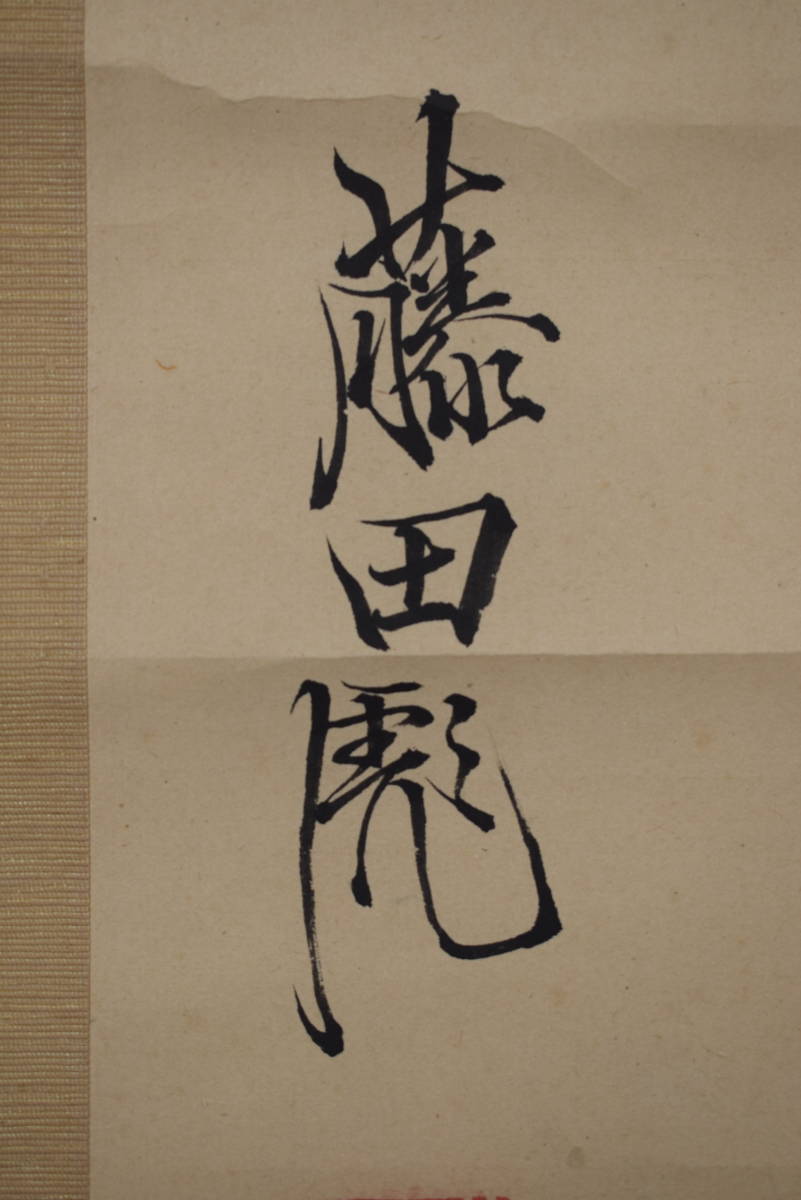 藤田彪